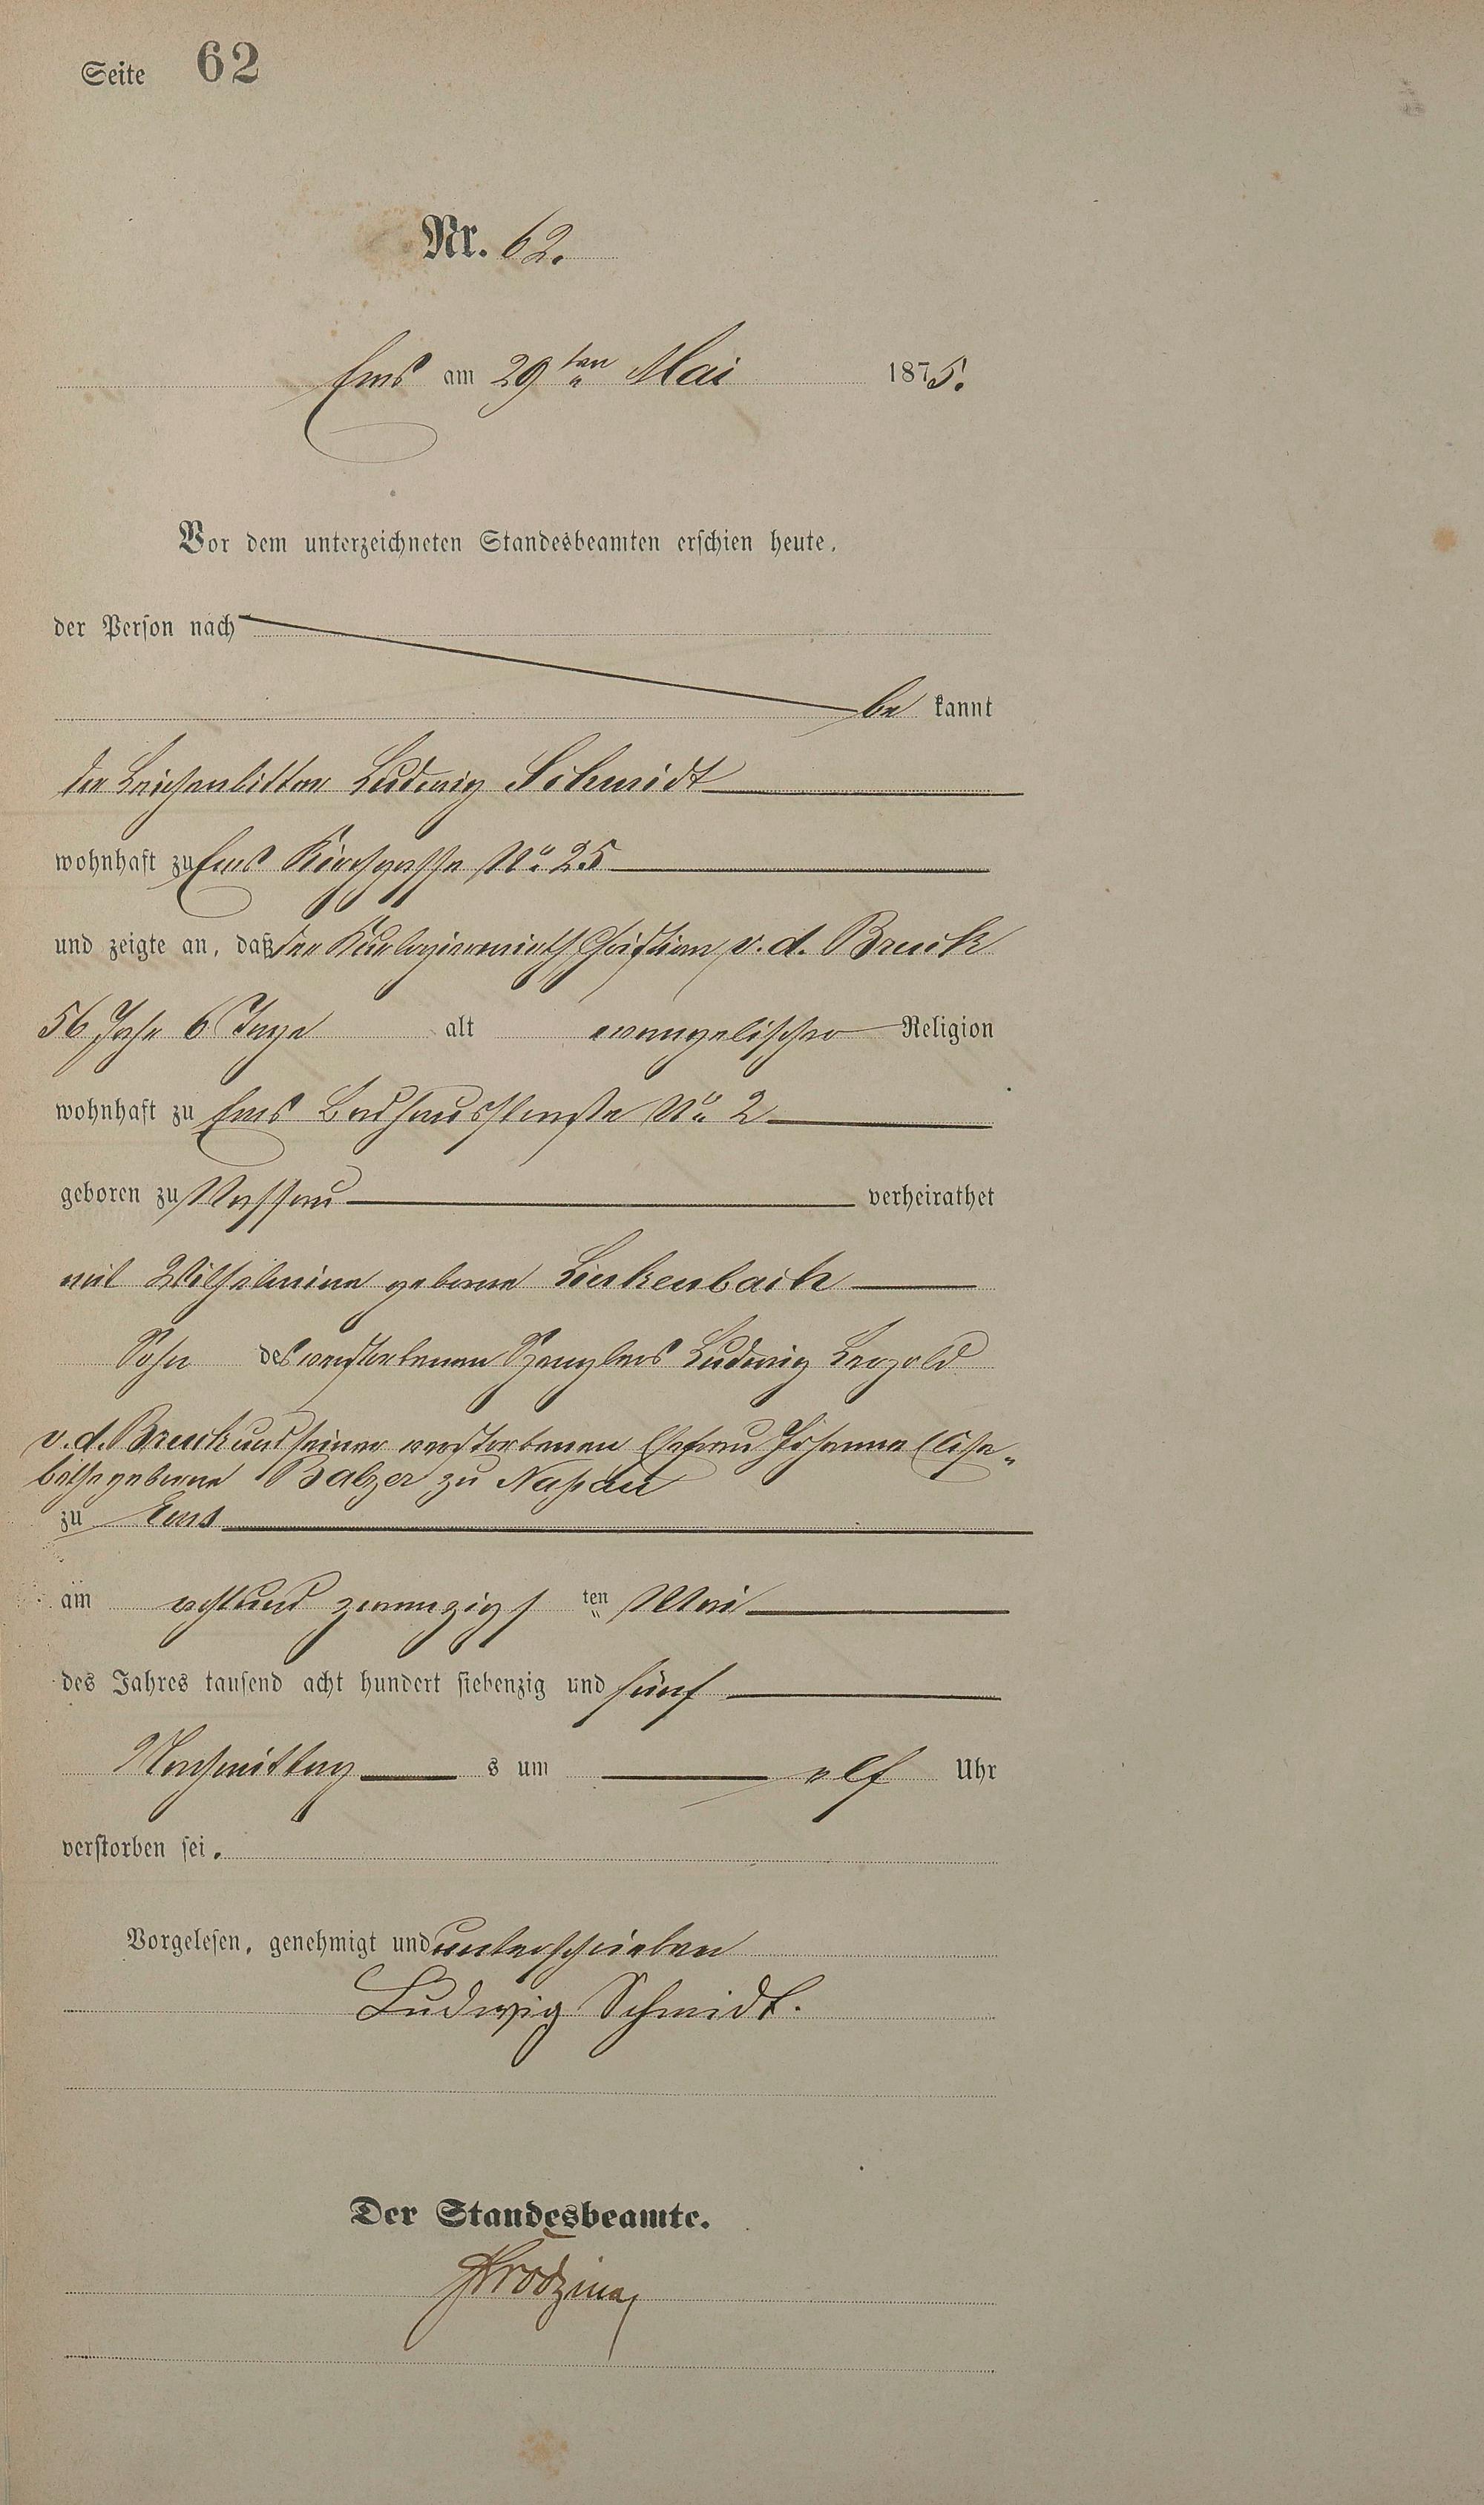 Seite 62
Nr. 62.
Ems am 29ten Mai 1875.
Vor dem unterzeichneten Standesbeamten erschien heute,
der Person nach
be kannt
der Leichenbitter Ludwig Schmidt
wohnhaft zu Ems Kirchgasse No. 25
und zeigte an, daß der Christian v. d. Bruck
56 Jahr 6 Tage alt evangelischer Religion
wohnhaft zu Ems Badhausstraße No. 2
geboren zu Nassau verheirathet
mit Wilhelmine geborene Linkenbach
Sohn des verstorbenen Spenglers Ludwig Leopold
v. d. Bruck und seiner verstorbenen Ehefrau Johanna Elisa-
betha geborene Balzer zu Naßau
zu Ems
am achtund zwanzigs ten Mai
des Jahres tausend acht hundert siebenzig und fünf
Nachmittag s um elf Uhr
verstorben sei.
Vorgelesen, genehmigt und unterschrieben
Ludwig Schmidt.
Der Standesbeamte.